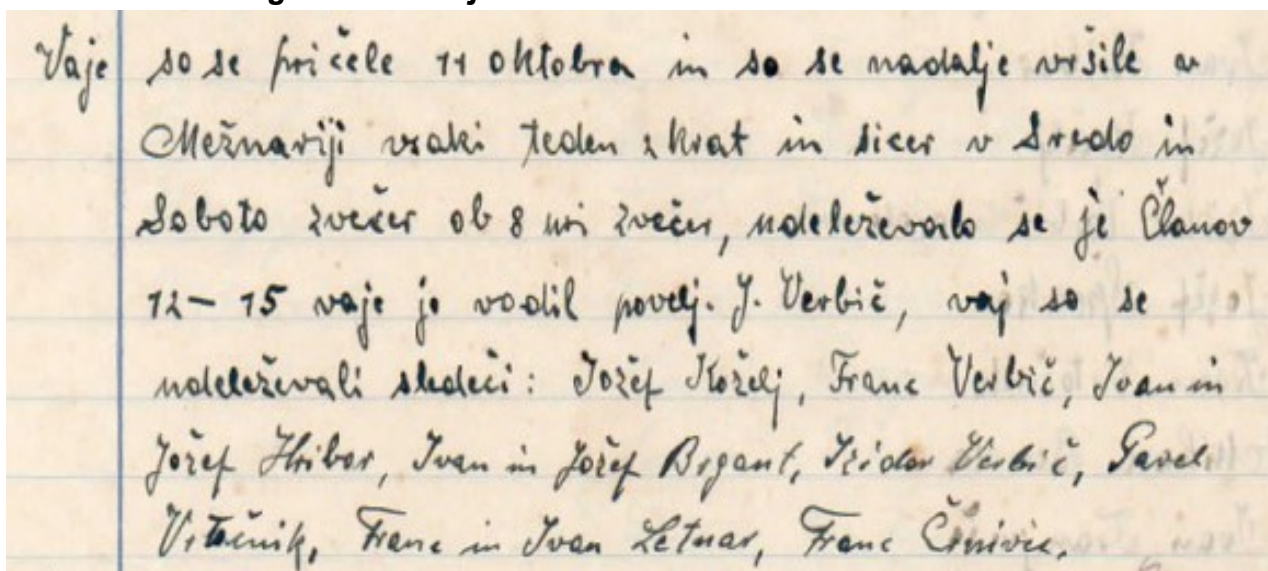 Vaje so se pričele 11 oktobra in so se nadalje vršile v
Mežnariji vsaki teden 2 krat in sicer v Sredo in
Soboto zvečer ob 8 uri zvečer, udeleževalo se je Članov
12 – 15 vaje je vodil povelj. J. Verbič, vaj so se
udeleževali sledeči: Jožef Koželj, Franc Verbič, Ivan in
Jožef Hribar, Ivan in Jožef Brgant, Izidor Verbič, Pavel
Vrtačnik, Franc in Ivan Letnar, Franc Črnivic,